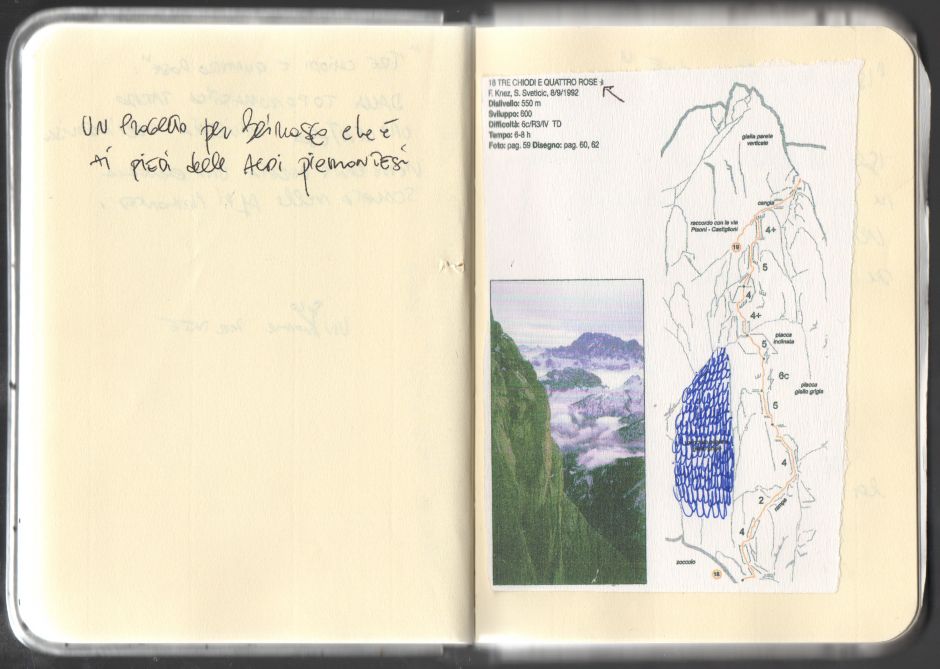 UN Progetto per Beinasco che è
Ai piedi delle ALPI PIEMONTESI
18 TRE CHIODI E QUATTRO ROSE
F. Knez, S. Sveticic, 8/9/1992
Dislivello: 550 m
Sviluppo: 600
Difficoltà: 6c/R3/IV TD
Tempo: 6-8 h
Foto: pag. 59 Disegno: pag. 60, 62
gialla parete
verticale
cengia
raccordo con la via
Pisoni - Castiglioni
18
4+
5
4
4+
5
placca
inclinata
6c
placca
giallo grigia
5
4
2
rampa
4
zoccolo
18